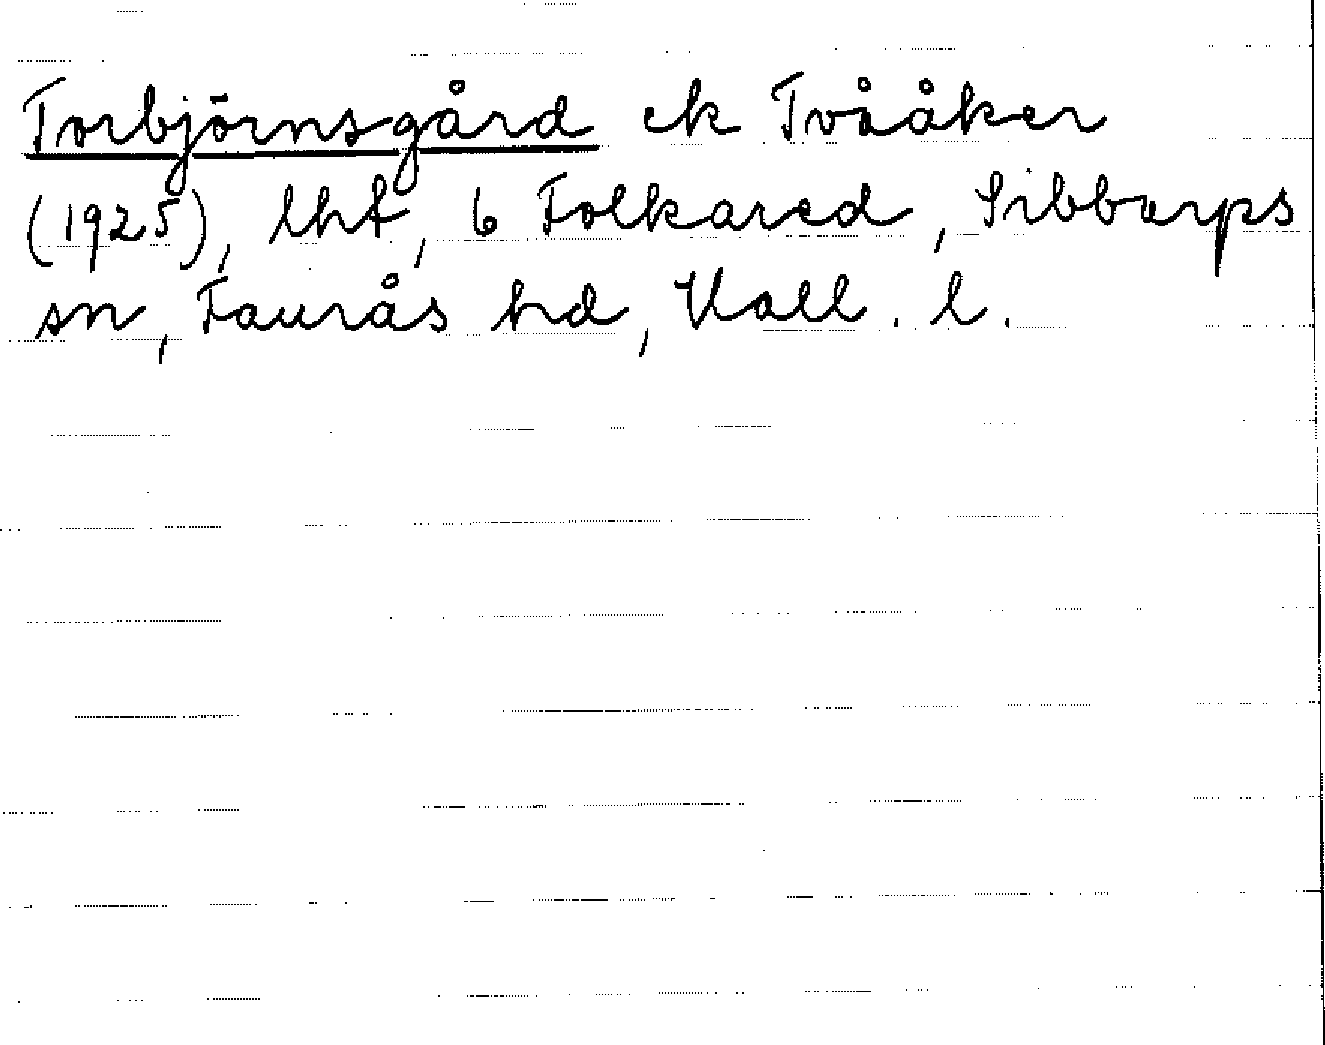 Torbjörnsgård ek Tvååker
(1925), lht, 6 Folkared, Sibbarps
sn, Faurås hd, Hall. l.